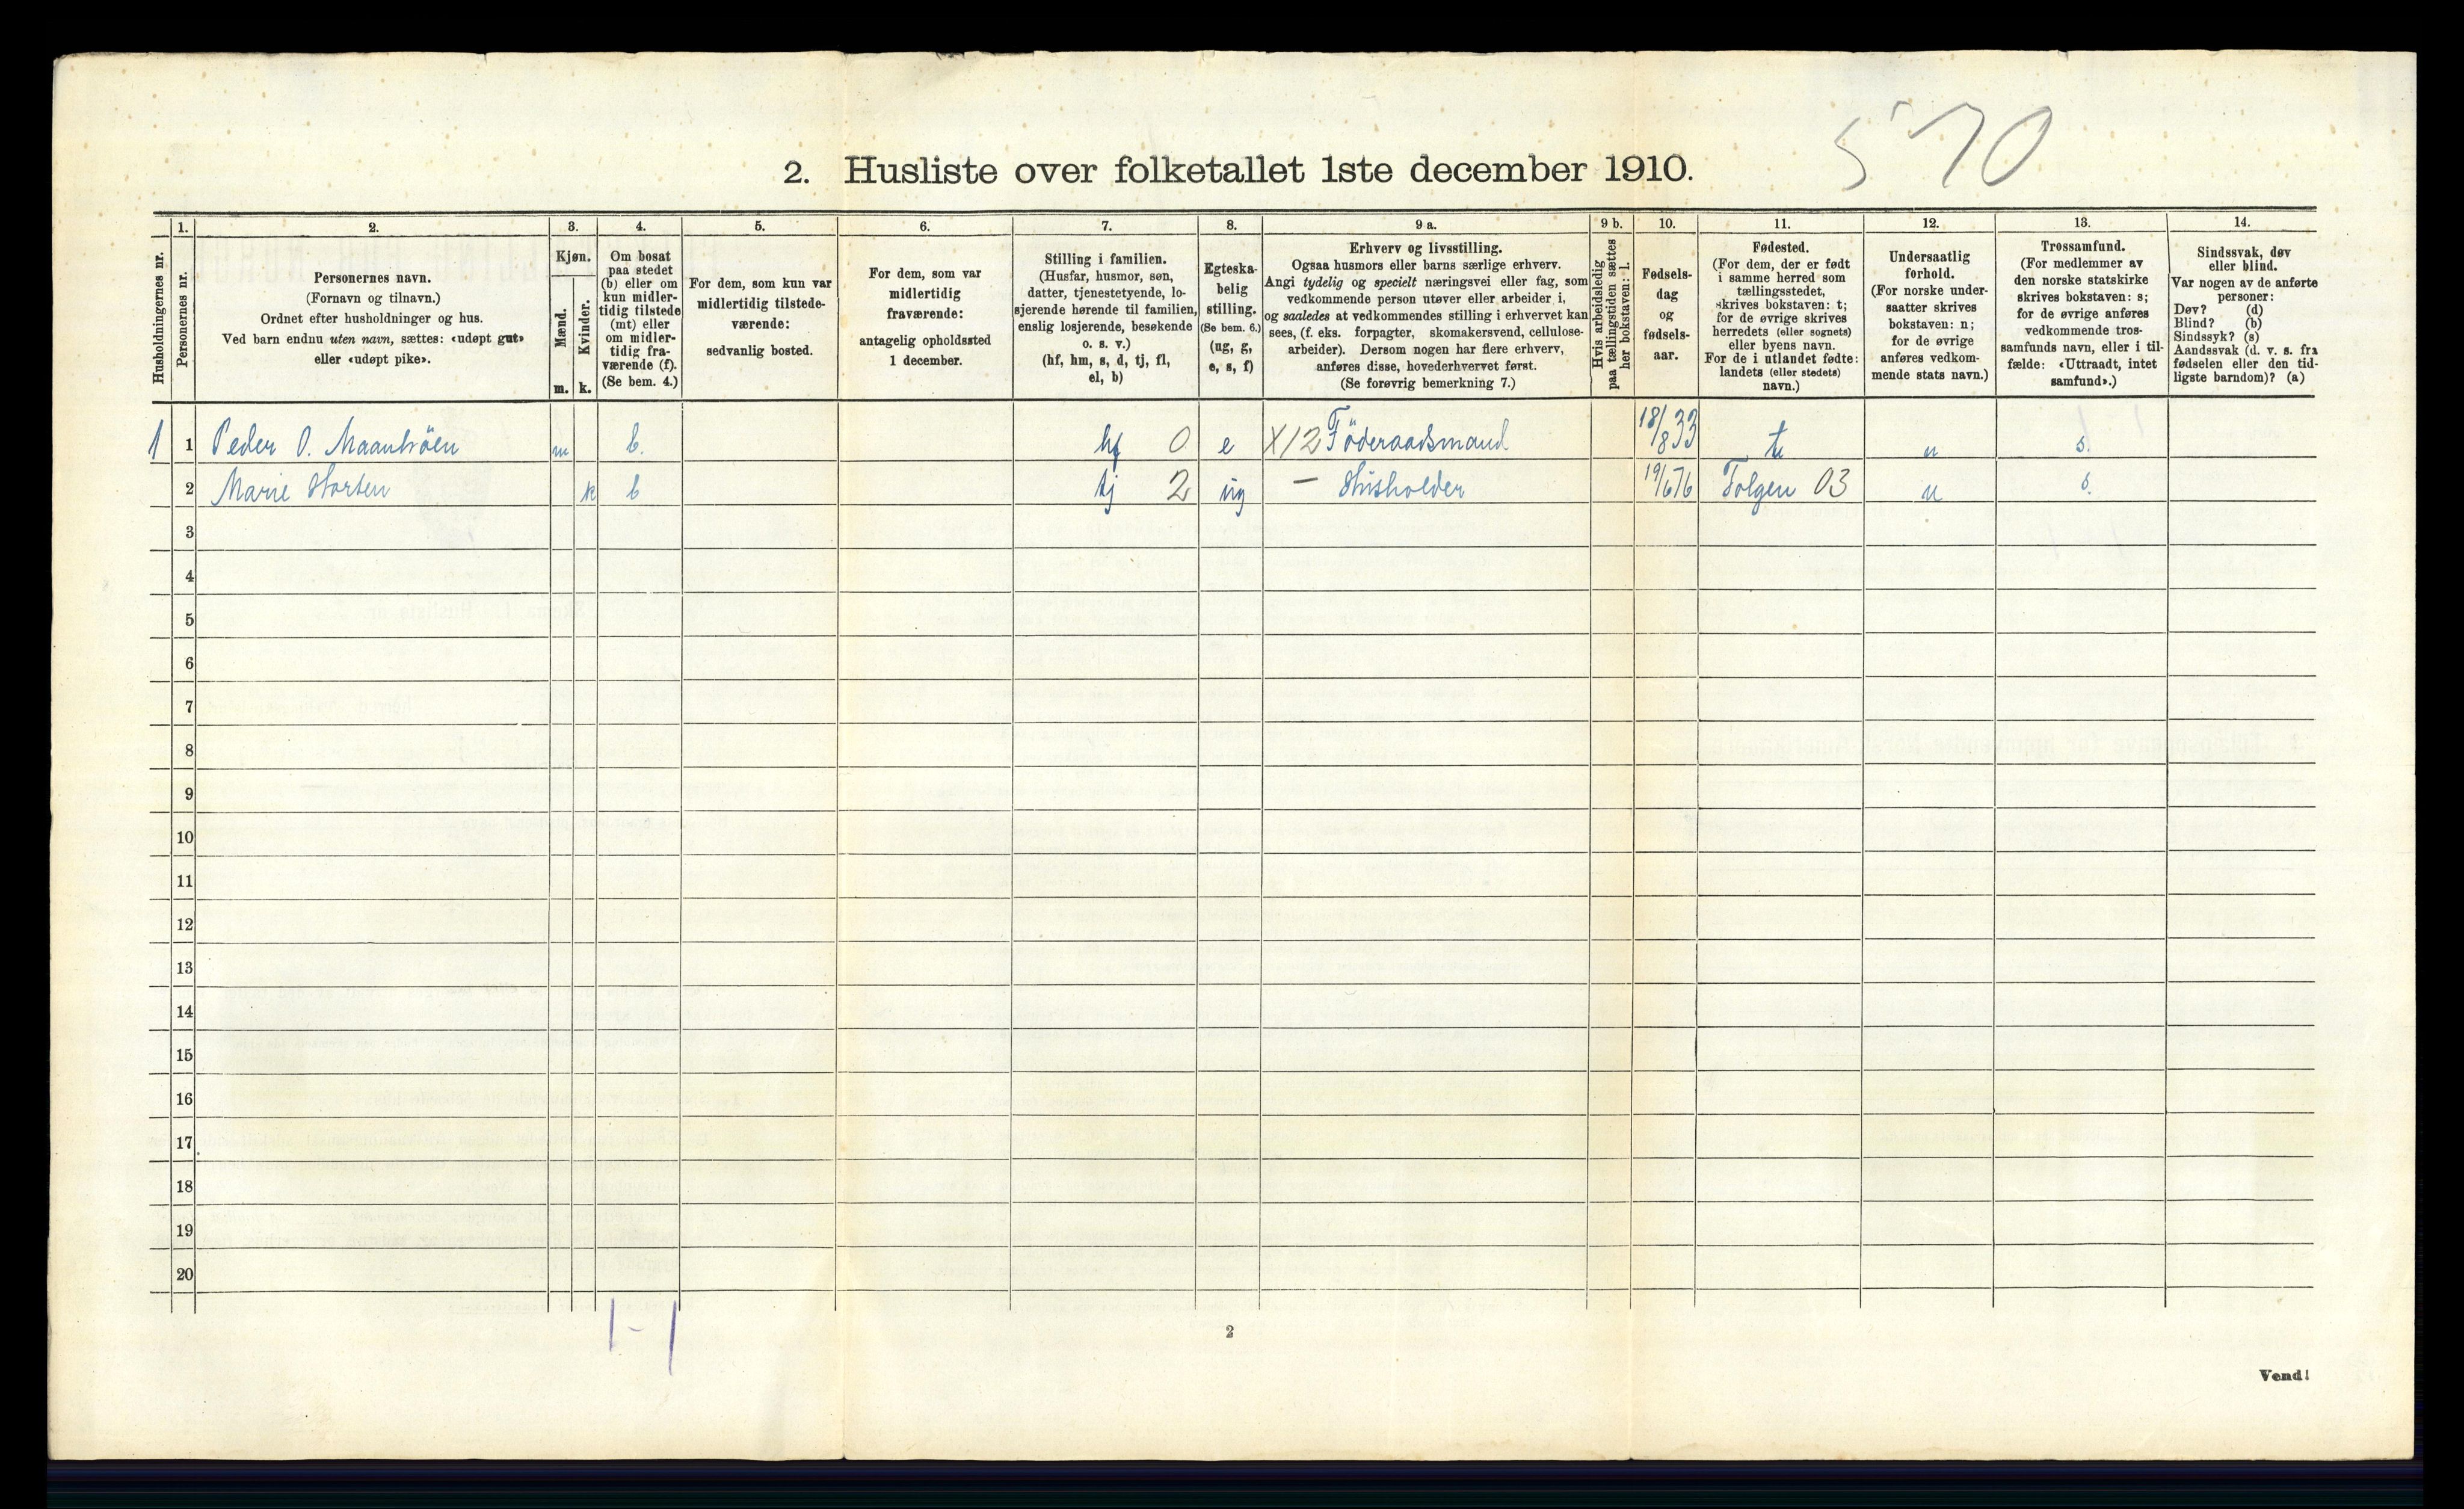 570
2. Husliste over folketallet 1ste december 1910.
Husholdningernes nr.
1.
Personernes nr.
2.
Personernes navn.
(Fornavn og tilnavn.)
Ordnet efter husholdninger og hus.
Ved barn endnu uten navn, sættes: «udøpt gut»
eller «udøpt pike».
3.
Kjøn.
Mænd.
Kvinder.
m. k.
4.
Om bosat
paa stedet
(b) eller om
kun midler-
tidig tilstede
(mt) eller
om midler-
tidig fra-
værende (f).
(Se bem. 4.)
5.
For dem, som kun var
midlertidig tilstede-
værende:
sedvanlig bosted.
6.
For dem, som var
midlertidig
fraværende:
antagelig opholdssted
1 december.
7.
Stilling i familien.
(Husfar, husmor, søn,
datter, tjenestetyende, lo-
sjerende hørende til familien,
enslig losjerende, besøkende
o. s. v.)
(hf, hm, s, d, tj, fl,
el, b)
8.
Egteska-
belig
stilling.
(Se bem. 6.)
(ug, g,
e, s, f)
9 a.
Erhverv og livsstilling.
Ogsaa husmors eller barns særlige erhverv.
Angi tydelig og specielt næringsvei eller fag, som
vedkommende person utøver eller arbeider i,
og saaledes at vedkommendes stilling i erhvervet kan
sees, (f. eks. forpagter, skomakersvend, cellulose-
arbeider). Dersom nogen har flere erhverv,
anføres disse, hovederhvervet først.
(Se forøvrig bemerkning 7.)
9 b.
Hvis arbeidsledig
paa tællingstiden sættes
her bokstaven: l.
10.
Fødsels-
dag
og
fødsels-
aar.
11.
Fødested.
(For dem, der er født
i samme herred som
tællingsstedet,
skrives bokstaven: t;
for de øvrige skrives
herredets (eller sognets)
eller byens navn.
For de i utlandet fødte:
landets (eller stedets)
navn.)
12.
Undersaatlig
forhold.
(For norske under-
saatter skrives
bokstaven: n;
for de øvrige
anføres vedkom-
mende stats navn.)
13.
Trossamfund.
(For medlemmer av
den norske statskirke
skrives bokstaven: s;
for de øvrige anføres
vedkommende tros-
samfunds navn, eller i til-
fælde: «Uttraadt, intet
samfund».)
14.
Sindssvak, døv
eller blind.
Var nogen av de anførte
personer:
Døv? (d)
Blind? (b)
Sindssyk? (s)
Aandssvak (d. v. s. fra
fødselen eller den tid-
ligste barndom)? (a)
1 1 Peder O. Maanbröen m b. hf 0 e X12 Föderaadsmand 18/8 33 t n s.
2 Marie Horten k b tj 2 ug — Husholder 19/6 76 Tolgen 03 n s.
3
4
5
6
7
8
9
10
11
12
13
14
15
16
17
18
19
20
1 - 1
2
Vend!